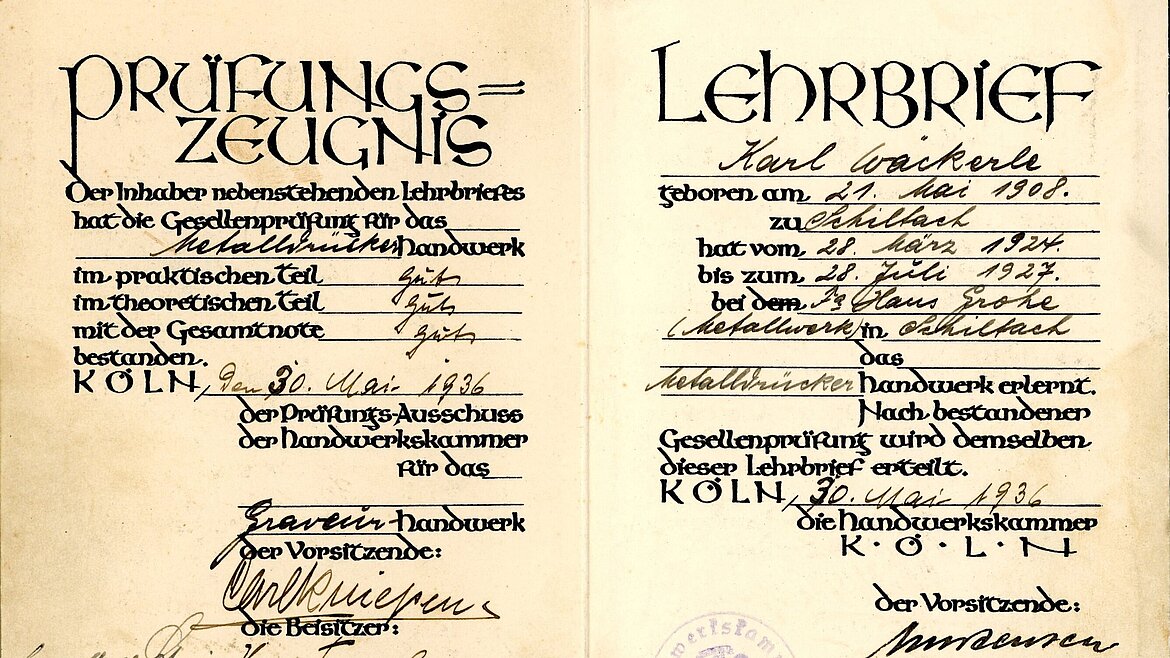 PRÜFUNGS=
ZEUGNIS
Der Inhaber nebenstehenden Lehrbriefes
hat die Gesellenprüfung für das
Metalldrücker Handwerk
im praktischen Teil gut
im theoretischen Teil gut
mit der Gesamtnote gut
bestanden.
KÖLN, den 30. Mai 1936
der Prüfungs-Ausschuss
der Handwerkskammer
für das
Graveur-Handwerk
der Vorsitzende:
Carl Kniepen
die Beisitzer:
LEHRBRIEF
Karl Wäckerle
geboren am 21. Mai 1908.
zu Schiltach
hat vom 28. März 1924.
bis zum 28. Juli 1927.
bei dem Fa Hans Grohe
(Metallwerk) in Schiltach
das
Metalldrücker Handwerk erlernt.
Nach bestandener
Gesellenprüfung wird demselben
dieser Lehrbrief erteilt.
KÖLN, 30. Mai 1936
die Handwerkskammer
K·Ö·L·N
der Vorsitzende: